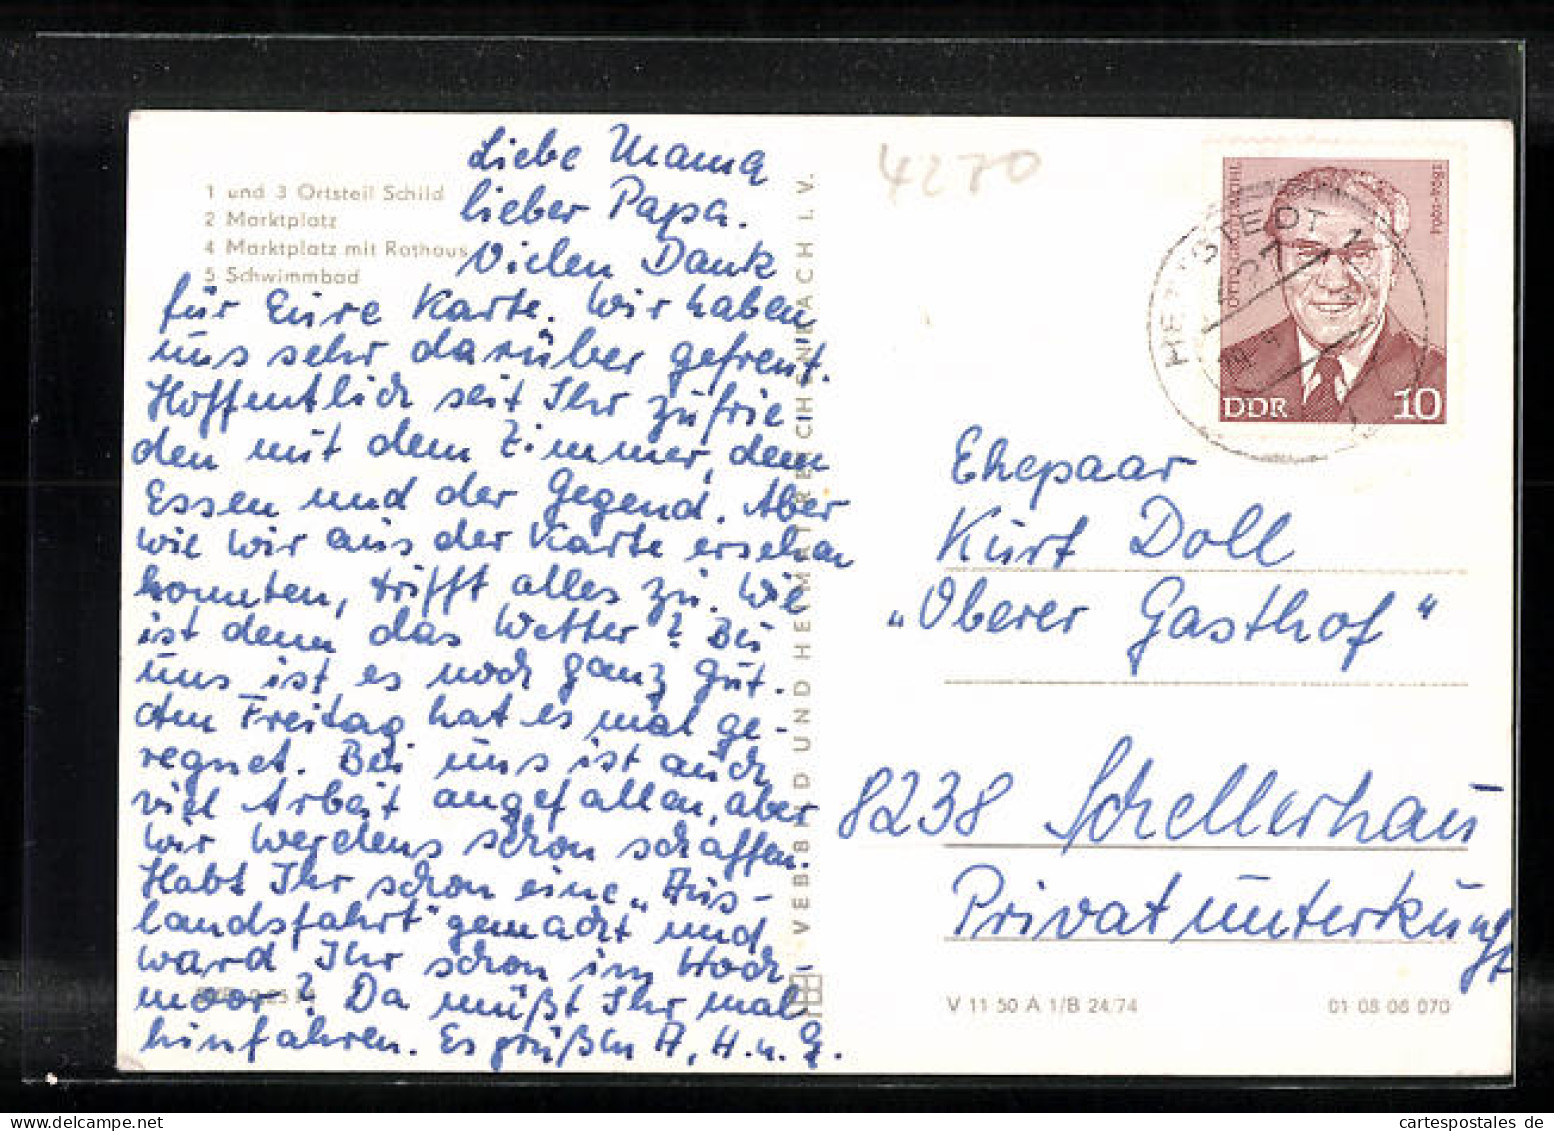 1 und 3 Ortsteil Schild
2 Marktplatz
4 Marktplatz mit Rathaus
5 Schwimmbad
Liebe Mama
lieber Papa.
Vielen Dank
für Eure Karte. Wir haben
uns sehr darüber gefreut.
Hoffentlich seit Ihr zufrie
den mit dem Zimmer, dem
Essen und der Gegend. Aber
wie wir aus der Karte ersehen
konnten, trifft alles zu. Wie
ist denn das Wetter? Bei
uns ist es noch ganz gut.
Am Freitag hat es mal ge-
regnet. Bei uns ist auch
viel Arbeit angefallen, aber
wir werdens schon schaffen.
Habt Ihr schon eine „Aus-
landsfahrt" gemacht und
ward Ihr schon im Hoch-
moor? Da müßt Ihr mal
hinfahren. Es grüßen A, H. u. G.
VEB BILD UND HEIMAT REICHENBACH I. V.
4270
OTTO GROTEWOHL
1894-1964
DDR 10
HETTSTEDT 1
427
Ehepaar
Kurt Doll
„Oberer Gasthof"
8238 Schellerhau
Privatunterkunft
V 11 50 A 1/B 24/74
01 08 06 070
cartespostales de